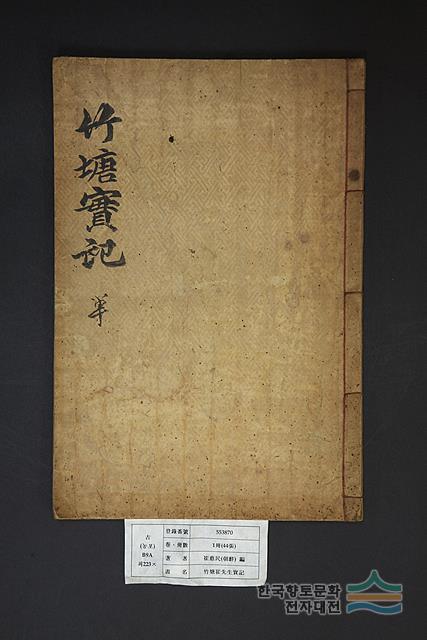 竹塘實記
單
古
B9A
登錄番號 553870
卷·冊數 1冊(44張)
著者 崔惠民(朝鮮) 編
書名 竹塘崔先生實記
한국향토문화
전자대전